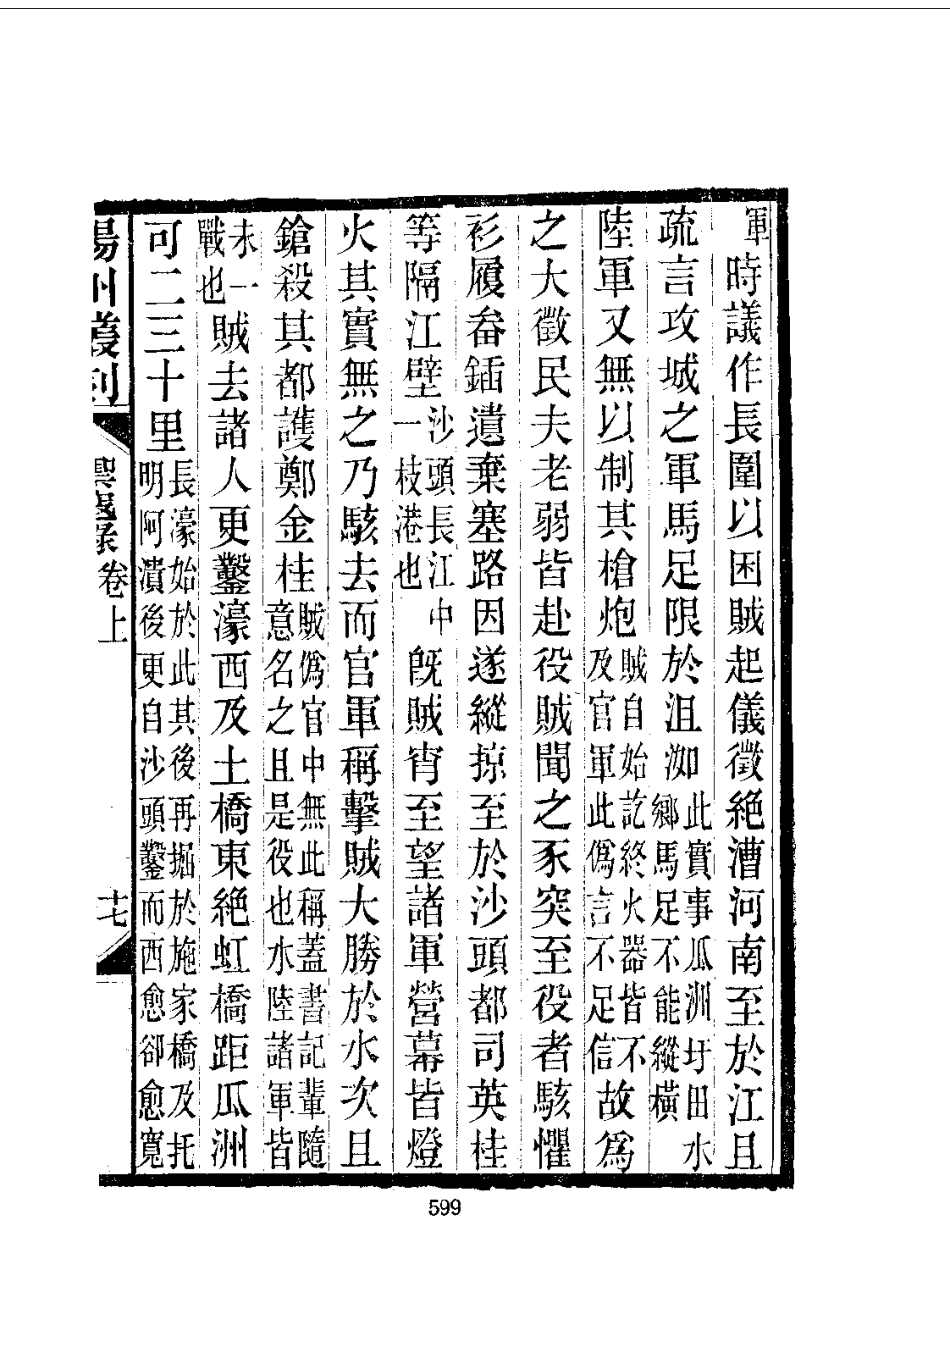 軍時議作長圍以困賊起儀徵絶漕河南至於江且
疏言攻城之軍馬足限於沮洳此實事瓜洲圩田水鄉馬足不能縱橫
陸軍又無以制其槍炮賊自始訖終火器皆不及官軍此僞言不足信故爲
之大徵民夫老弱皆赴役賊聞之豕突至役者駭懼
衫履畚鍤遺棄塞路因遂縱掠至於沙頭都司英桂
等隔江壁沙頭長江中一枝港也旣賊宵至望諸軍營幕皆燈
火其實無之乃駭去而官軍稱擊賊大勝於水次且
鎗殺其都護鄭金桂賊僞官中無此稱蓋書記輩隨意名之且是役也水陸諸軍皆
未一戰也賊去諸人更鑿濠西及土橋東絶虹橋距瓜洲
可二三十里長濠始於此其後再掘於施家橋及托明阿潰後更自沙頭鑿而西愈卻愈寬
揚州叢刻
卷上
十七
599